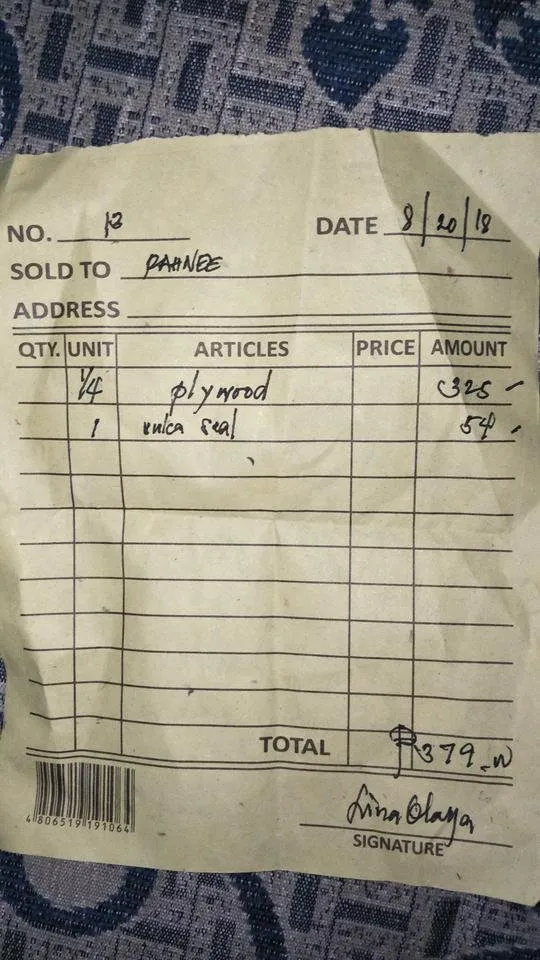 NO. 13 DATE 8/20/18
SOLD TO DAHNEE
ADDRESS
QTY. UNIT ARTICLES PRICE AMOUNT
1/4 plywood 325
1 vulca seal 54
TOTAL ₱379.
4 806519 191064
Lina Olaya
SIGNATURE